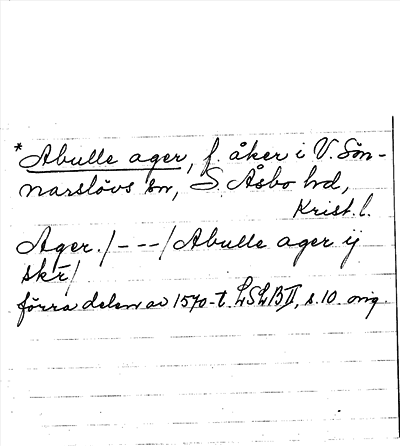 * Abulle ager, f. åker i V. Sön-
narslövs sn, S. Åsbo hd,
Krist. l.
Ager. /---/ Abulle ager ij
skr/
förra delen av 1570-t. LSLB II, s. 10. orig.